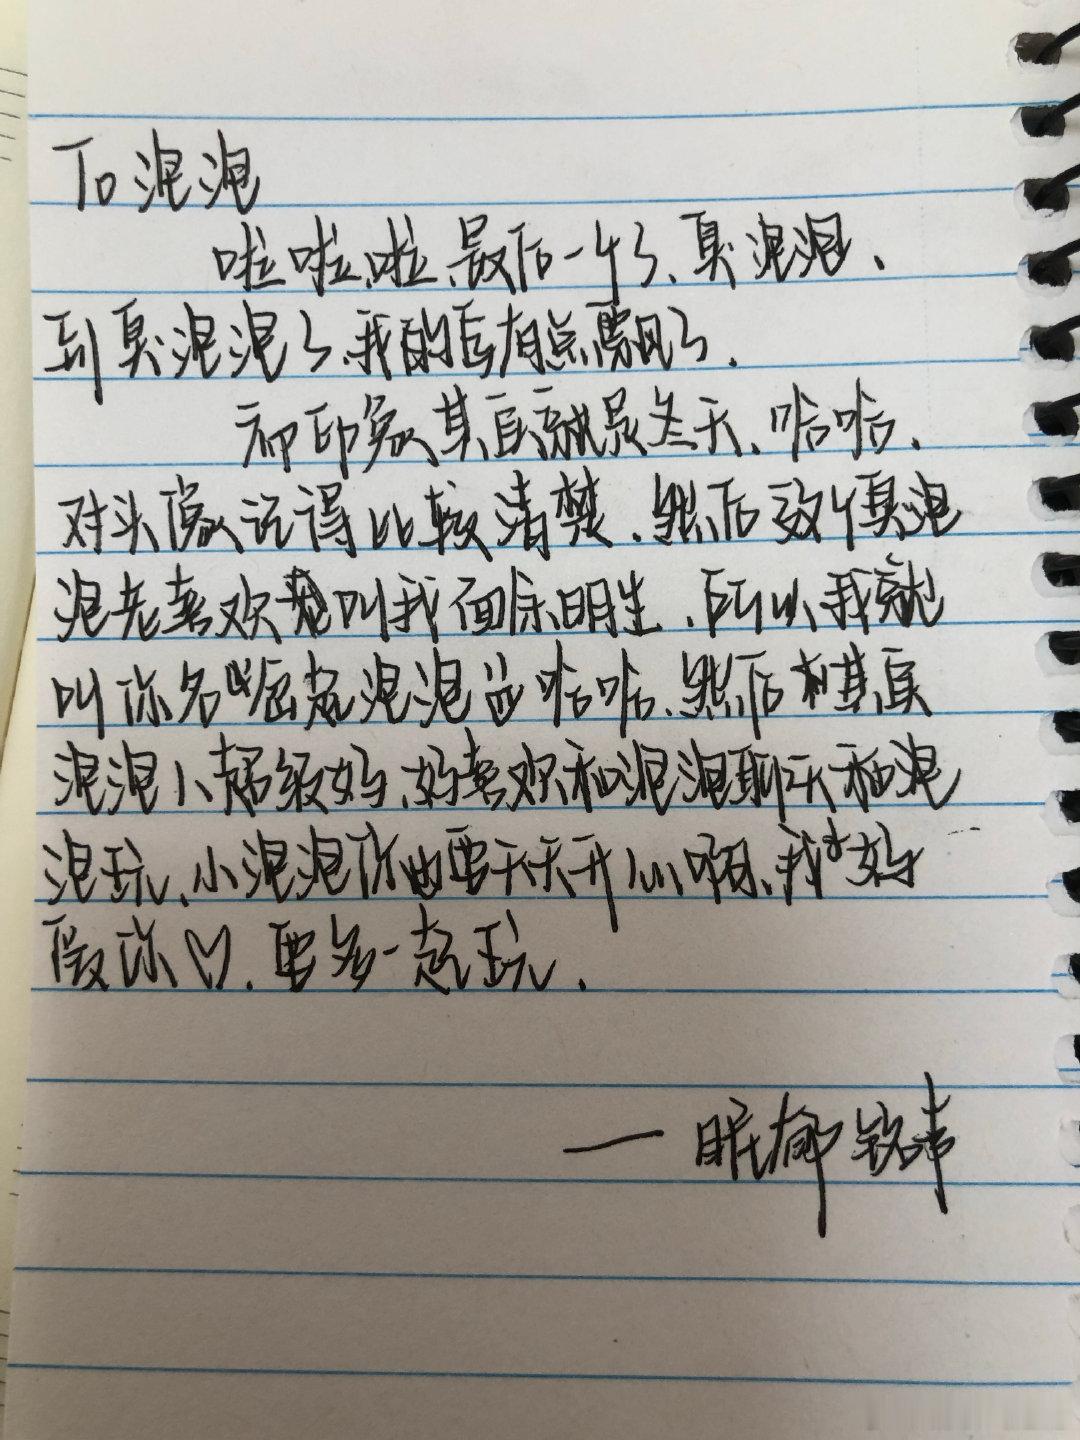 To 泡泡
啦啦啦、最后一个了、臭泡泡、
到臭泡泡了、我的后有点飘了.
初印象其实就是冬天、哈哈、
对头像记得比较清楚、然后这个臭泡
泡老喜欢叫我面除明生、所以我就
叫你名崛起泡泡 哈哈、然后其实
泡泡人超级好、好喜欢和泡泡聊天和泡
泡玩、小泡泡你也要天天开心啊、我好
爱你♡. 要多一起玩.
— 眠